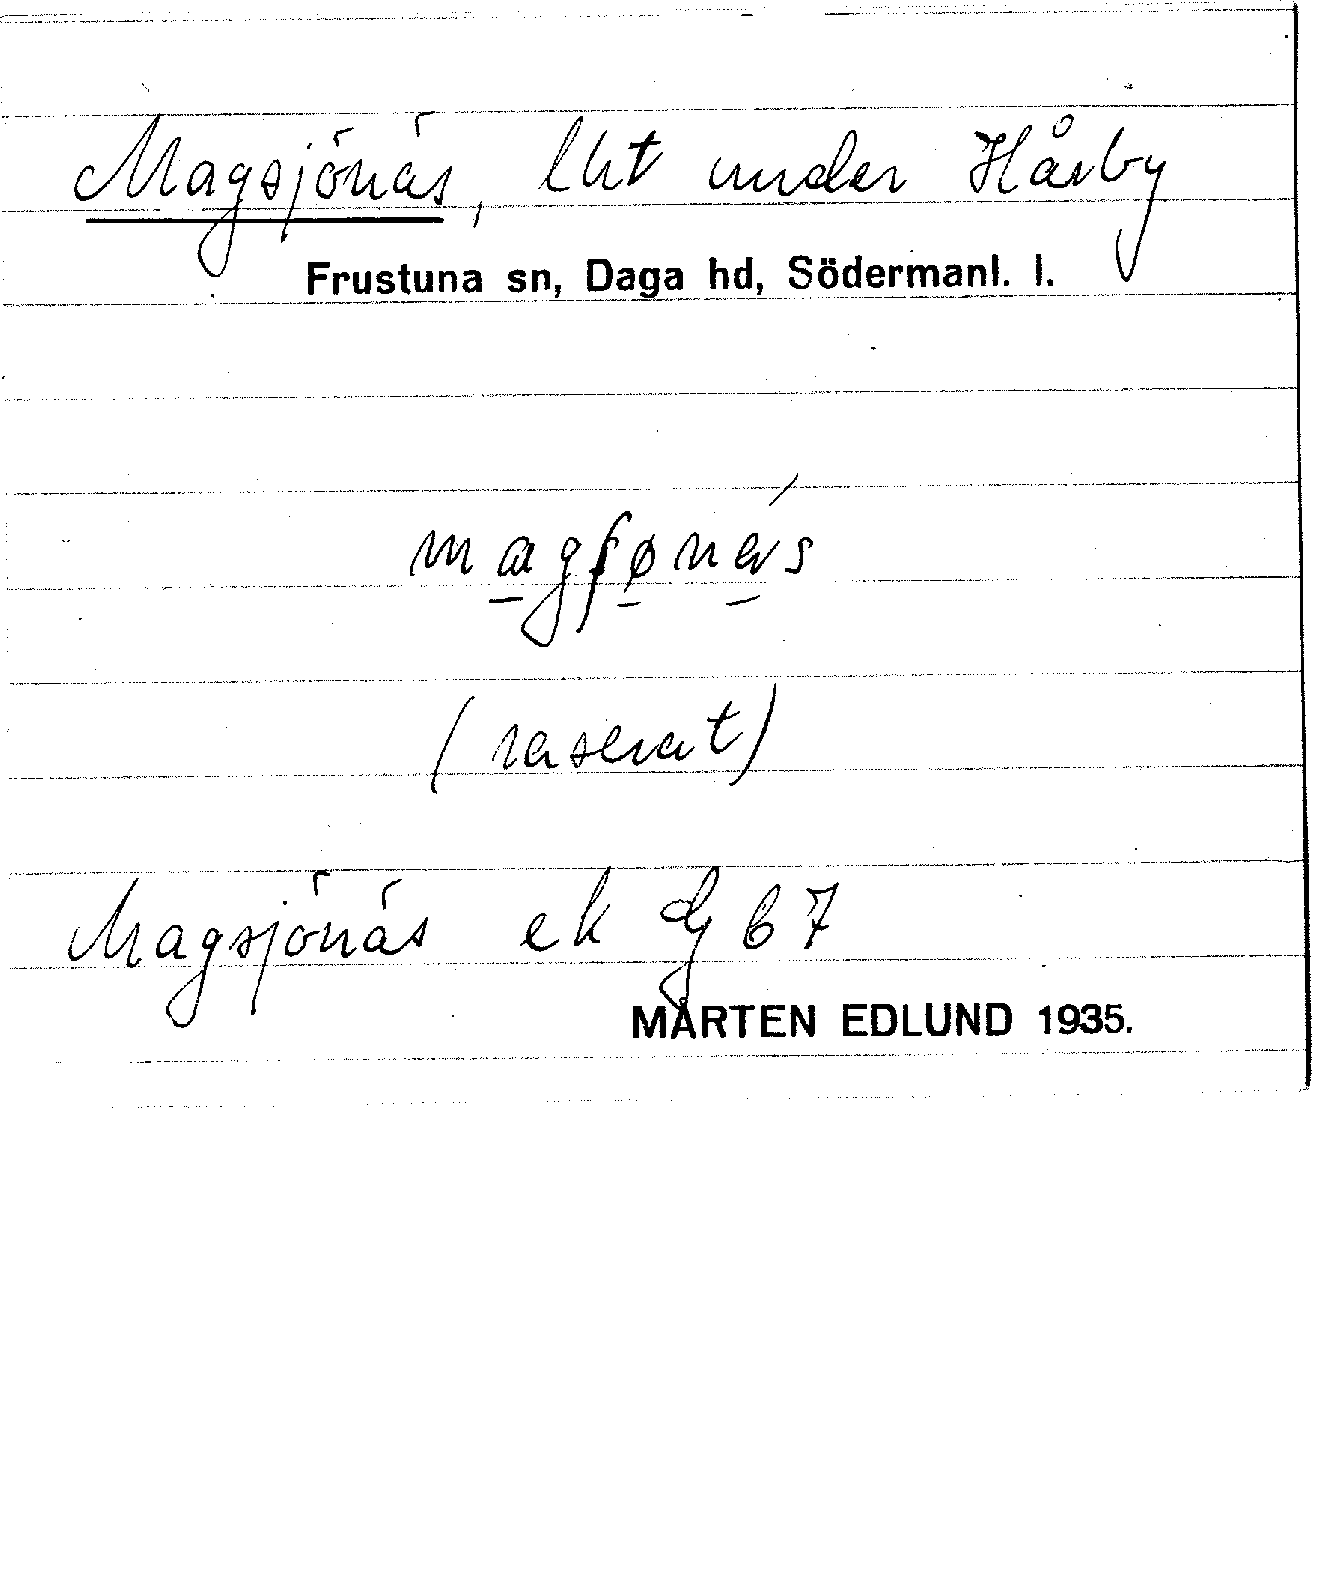 Magsjönäs, lht under Hårby
Frustuna sn, Daga hd, Södermanl. l.
(raserat)
Magsjönäs ek 67
MÅRTEN EDLUND 1935.